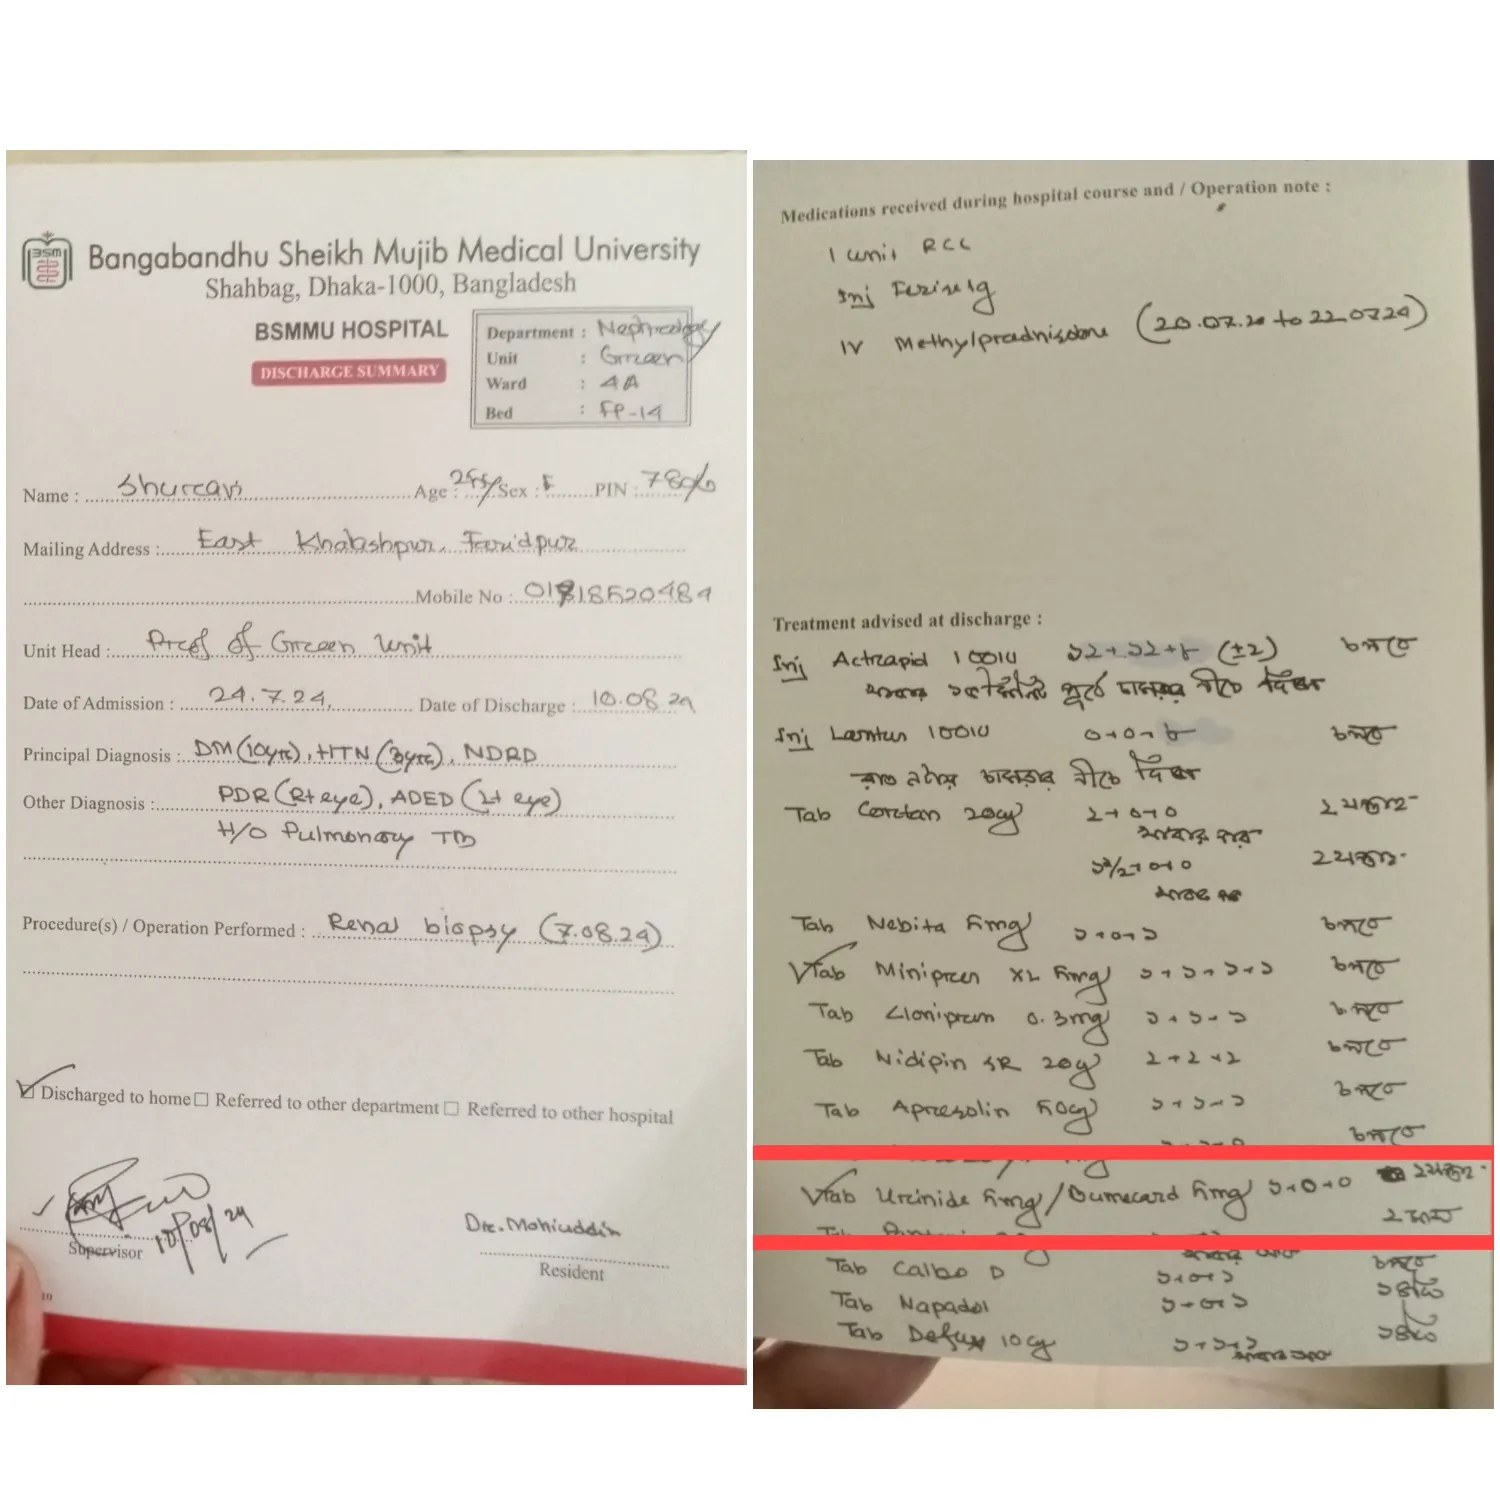 BSM
Bangabandhu Sheikh Mujib Medical University
Shahbag, Dhaka-1000, Bangladesh
BSMMU HOSPITAL
DISCHARGE SUMMARY
Department : Nephrology
Unit : Green
Ward : 4A
Bed : FP-14
Name : Age : Sex : F PIN :
Mailing Address : East Khabashpur, Faridpur
Mobile No : 01718520484
Unit Head : Prof of Green Unit
Date of Admission : 24.7.24, Date of Discharge : 10.08.24
Principal Diagnosis : DM (10yrs), HTN (3yrs), NDRD
Other Diagnosis : PDR (Rt eye), ADED (Lt eye)
H/O Pulmonary TB
Procedure(s) / Operation Performed : Renal biopsy (7.08.24)
Discharged to home Referred to other department Referred to other hospital
10/08/24
Supervisor
Dr. Mohiuddin
Resident
10
Medications received during hospital course and / Operation note :
1 unit RCC
Inj 1g
IV Methylprednisolone (20.07.20 to 22.0724)
Treatment advised at discharge :
Inj Actrapid 100IU ১২+১২+৮ (±2) চলবে
খাবার মিনিট পূর্বে চামড়ার নীচে দিবেন
Inj Lantus 100IU ০+০+৮ চলবে
রাত ৯টায় চামড়ার নীচে দিবেন
Tab Cortan 20mg ২+০+০ ২ সপ্তাহ
খাবার পর
১১/২+০+০ ২ সপ্তাহ
খাবার পর
Tab Nebita 5mg ১+০+১ চলবে
Tab Minipren XL 5mg ১+১+১+১ চলবে
Tab Clonipren 0.3mg ১+১+১ চলবে
Tab Nidipin SR 20mg ২+২+২ চলবে
Tab Apresolin 50mg ১+১+১ চলবে
চলবে
Tab Urinide 5mg/Bumecard 5mg ১+০+০ ২ সপ্তাহ
Tab
Tab Calbo D ১+০+১ চলবে
Tab Napadol ১+০+১
Tab 10mg ১+১+১